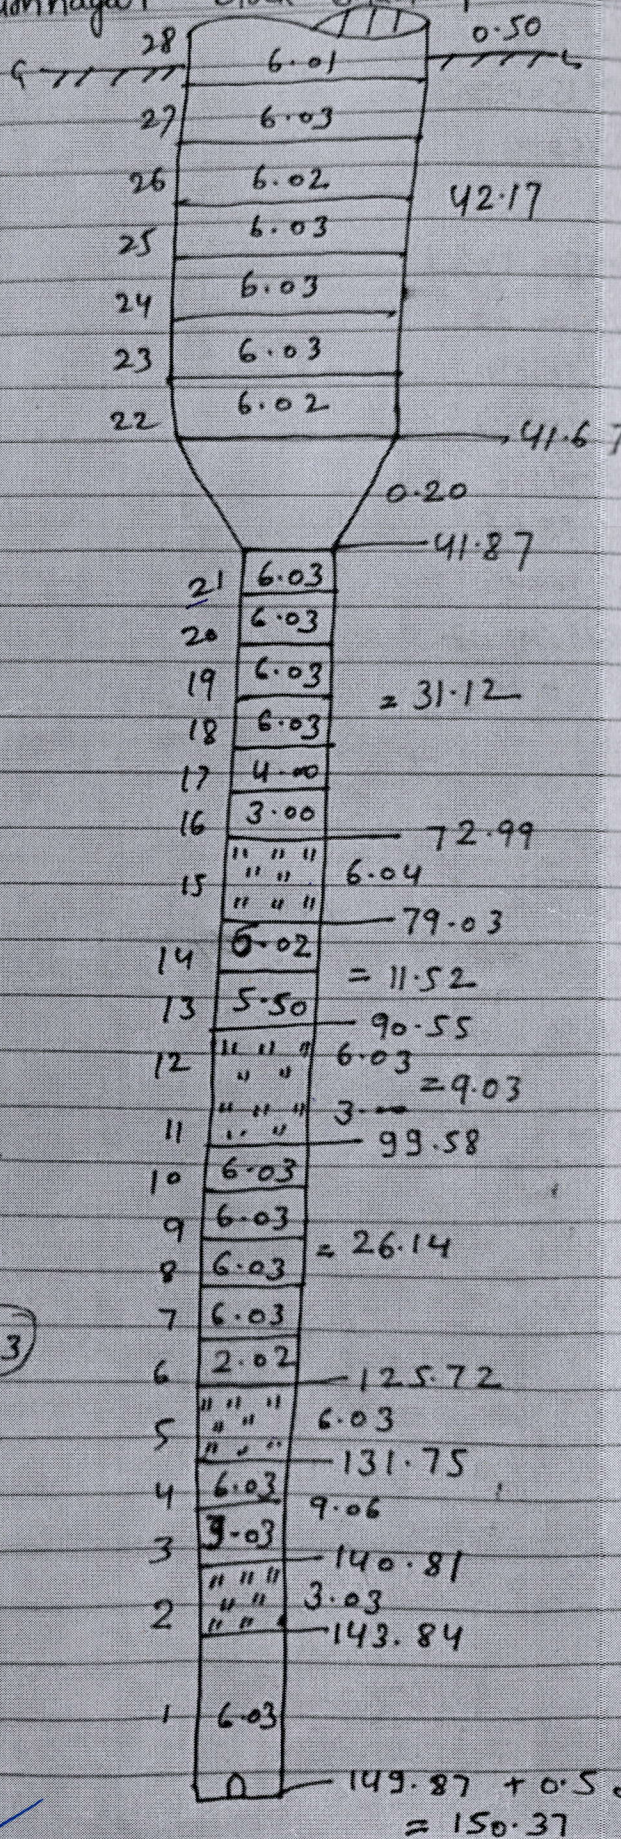 28 6.01 0.50
G L
27 6.03
26 6.02 42.17
25 6.03
24 6.03
23 6.03
22 6.02
41.67
0.20
41.87
21 6.03
20 6.03
19 6.03 = 31.12
18 6.03
17 4.00
16 3.00
72.99
15 6.04
79.03
14 6.02 = 11.52
13 5.50
90.55
12 6.03 = 9.03
11 3.—
99.58
10 6.03
9 6.03 = 26.14
8 6.03
7 6.03
3
6 2.02
125.72
5 6.03
131.75
4 6.03 9.06
3 3.03
140.81
2 3.03
143.84
1 6.03
149.87 + 0.5
= 150.37